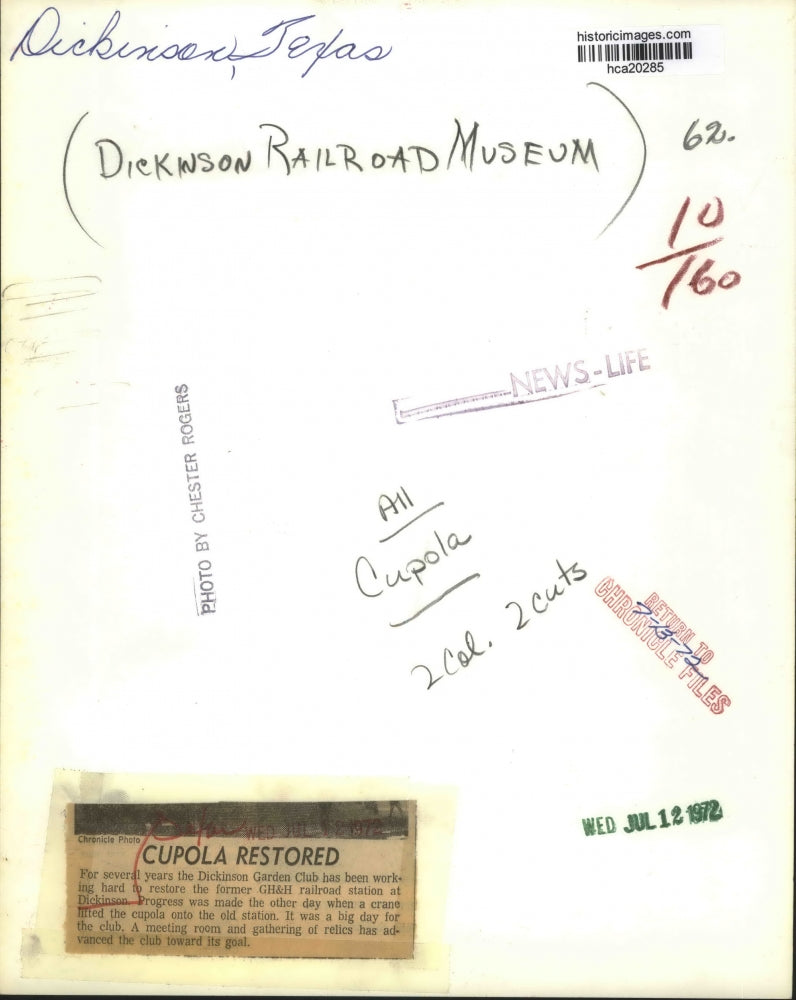 Dickinson, Texas
historicimages.com
hca20285
(DICKINSON RAILROAD MUSEUM)
62.
10
/60
NEWS-LIFE
PHOTO BY CHESTER ROGERS
All
Cupola
2 Col. 2 cuts
RETURN TO
7-13-72
CHRONICLE FILES
WED JUL 12 1972
WED JUL 12 1972
Chronicle Photo
CUPOLA RESTORED
For several years the Dickinson Garden Club has been work-
ing hard to restore the former GH&H railroad station at
Dickinson. Progress was made the other day when a crane
lifted the cupola onto the old station. It was a big day for
the club. A meeting room and gathering of relics has ad-
vanced the club toward its goal.